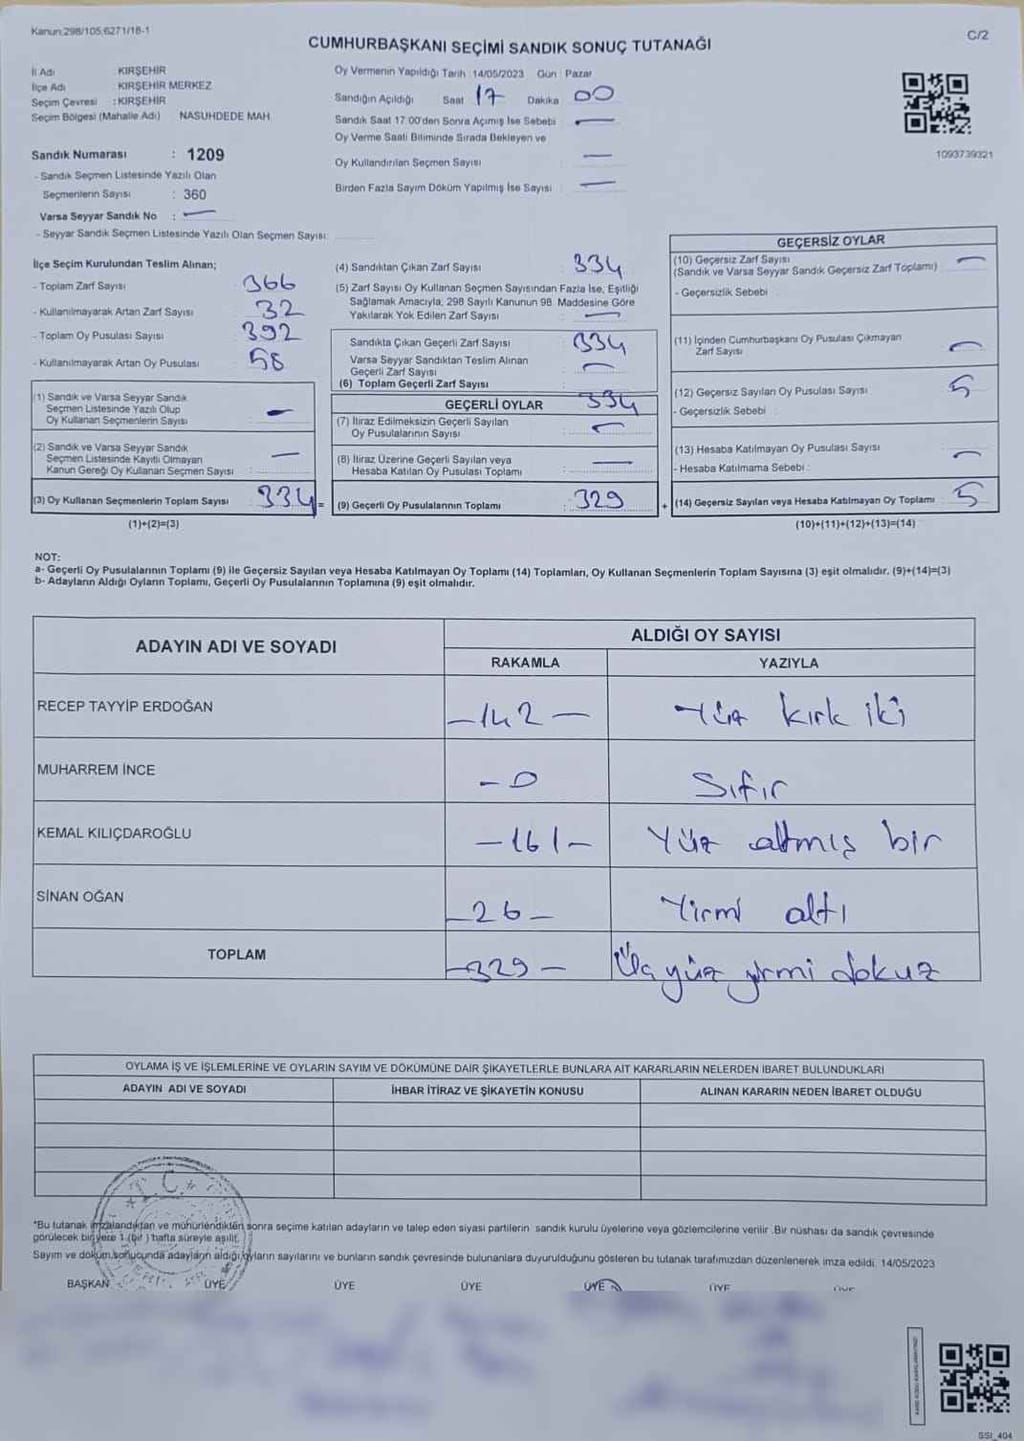 Kanun:298/105,6271/18-1
C/2
CUMHURBAŞKANI SEÇİMİ SANDIK SONUÇ TUTANAĞI
İl Adı : KIRŞEHİR
İlçe Adı : KIRŞEHİR MERKEZ
Seçim Çevresi : KIRŞEHİR
Seçim Bölgesi (Mahalle Adı) NASUHDEDE MAH.
Oy Vermenin Yapıldığı Tarih : 14/05/2023 Gün : Pazar
Sandığın Açıldığı Saat 17 Dakika 00
Sandık Saat 17:00'den Sonra Açımış İse Sebebi : —
Oy Verme Saati Bitiminde Sırada Bekleyen ve
Oy Kullandırılan Seçmen Sayısı : —
Birden Fazla Sayım Döküm Yapılmış İse Sayısı : —
1093739321
Sandık Numarası : 1209
- Sandık Seçmen Listesinde Yazılı Olan
Seçmenlerin Sayısı : 360
Varsa Seyyar Sandık No : —
- Seyyar Sandık Seçmen Listesinde Yazılı Olan Seçmen Sayısı:
İlçe Seçim Kurulundan Teslim Alınan;
- Toplam Zarf Sayısı : 366
- Kullanılmayarak Artan Zarf Sayısı : 32
- Toplam Oy Pusulası Sayısı : 392
- Kullanılmayarak Artan Oy Pusulası : 58
(1) Sandık ve Varsa Seyyar Sandık
Seçmen Listesinde Yazılı Olup
Oy Kullanan Seçmenlerin Sayısı : —
(2) Sandık ve Varsa Seyyar Sandık
Seçmen Listesinde Kayıtlı Olmayan
Kanun Gereği Oy Kullanan Seçmen Sayısı : —
(3) Oy Kullanan Seçmenlerin Toplam Sayısı 334 =
(1)+(2)=(3)
(4) Sandıktan Çıkan Zarf Sayısı : 334
(5) Zarf Sayısı Oy Kullanan Seçmen Sayısından Fazla İse, Eşitliği
Sağlamak Amacıyla, 298 Sayılı Kanunun 98. Maddesine Göre
Yakılarak Yok Edilen Zarf Sayısı : —
Sandıkta Çıkan Geçerli Zarf Sayısı : 334
Varsa Seyyar Sandıktan Teslim Alınan
Geçerli Zarf Sayısı : —
(6) Toplam Geçerli Zarf Sayısı : 334
GEÇERLİ OYLAR
(7) İtiraz Edilmeksizin Geçerli Sayılan
Oy Pusulalarının Sayısı : —
(8) İtiraz Üzerine Geçerli Sayılan veya
Hesaba Katılan Oy Pusulası Toplamı : —
(9) Geçerli Oy Pusulalarının Toplamı : 329 +
GEÇERSİZ OYLAR
(10) Geçersiz Zarf Sayısı : —
(Sandık ve Varsa Seyyar Sandık Geçersiz Zarf Toplamı)
- Geçersizlik Sebebi :
(11) İçinden Cumhurbaşkanı Oy Pusulası Çıkmayan
Zarf Sayısı : —
(12) Geçersiz Sayılan Oy Pusulası Sayısı : 5
- Geçersizlik Sebebi :
(13) Hesaba Katılmayan Oy Pusulası Sayısı : —
- Hesaba Katılmama Sebebi :
(14) Geçersiz Sayılan veya Hesaba Katılmayan Oy Toplamı : 5
(10)+(11)+(12)+(13)=(14)
NOT:
a- Geçerli Oy Pusulalarının Toplamı (9) ile Geçersiz Sayılan veya Hesaba Katılmayan Oy Toplamı (14) Toplamları, Oy Kullanan Seçmenlerin Toplam Sayısına (3) eşit olmalıdır. (9)+(14)=(3)
b- Adayların Aldığı Oyların Toplamı, Geçerli Oy Pusulalarının Toplamına (9) eşit olmalıdır.
ADAYIN ADI VE SOYADI
ALDIĞI OY SAYISI
RAKAMLA YAZIYLA
RECEP TAYYİP ERDOĞAN —142— Yüz kırk iki
MUHARREM İNCE —0 Sıfır
KEMAL KILIÇDAROĞLU —161— Yüz altmış bir
SİNAN OĞAN —26— Yirmi altı
TOPLAM —329— Üç yüz yirmi dokuz
OYLAMA İŞ VE İŞLEMLERİNE VE OYLARIN SAYIM VE DÖKÜMÜNE DAİR ŞİKAYETLERLE BUNLARA AİT KARARLARIN NELERDEN İBARET BULUNDUKLARI
ADAYIN ADI VE SOYADI İHBAR İTİRAZ VE ŞİKAYETİN KONUSU ALINAN KARARIN NEDEN İBARET OLDUĞU
T.C.
*Bu tutanak imzalandıktan ve mühürlendikten sonra seçime katılan adayların ve talep eden siyasi partilerin sandık kurulu üyelerine veya gözlemcilerine verilir. Bir nüshası da sandık çevresinde
görülecek bir yere 1 (bir) hafta süreyle asılır.
Sayım ve döküm sonucunda adayların aldığı oyların sayılarını ve bunların sandık çevresinde bulunanlara duyurulduğunu gösteren bu tutanak tarafımızdan düzenlenerek imza edildi. 14/05/2023
BAŞKAN ÜYE ÜYE ÜYE ÜYE ÜYE ÜYE
SSI_404